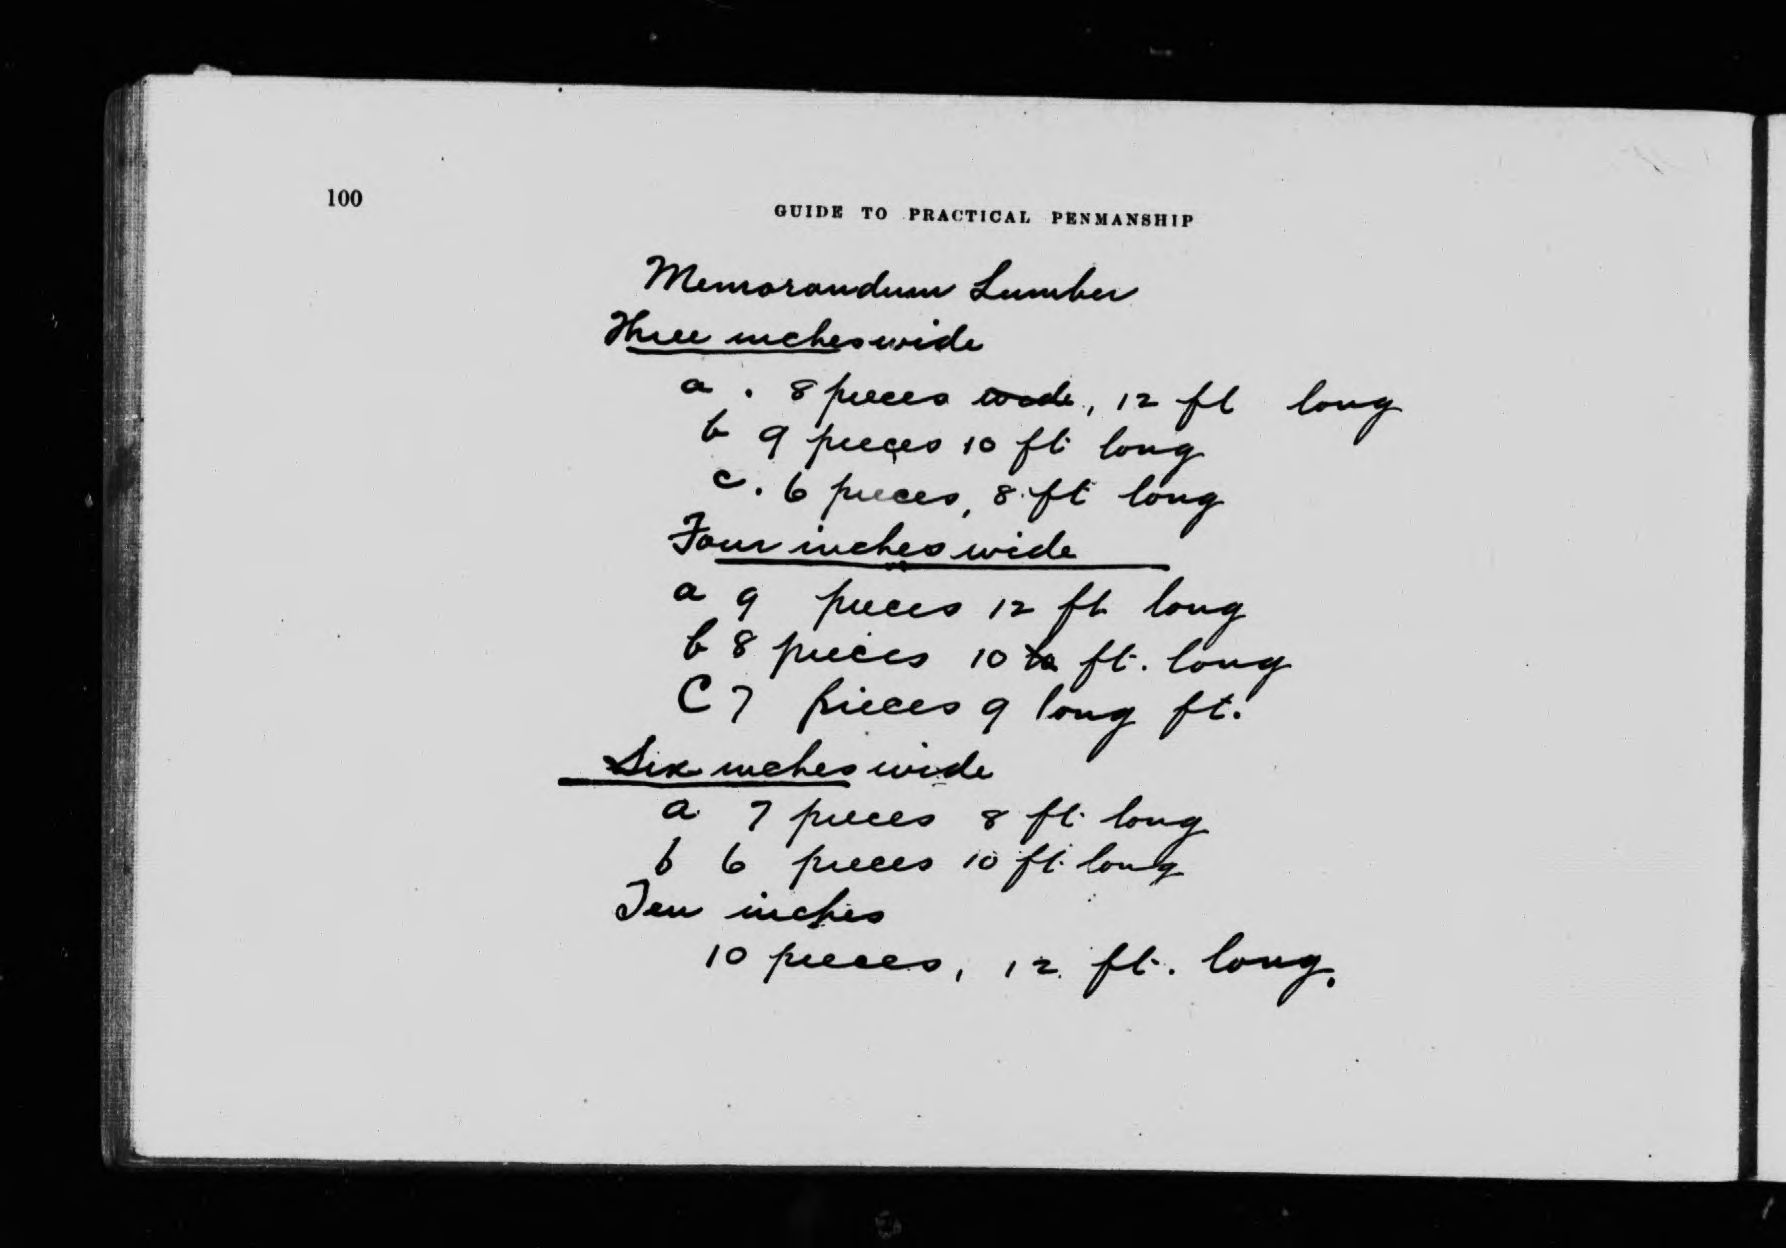 100
GUIDE TO PRACTICAL PENMANSHIP
Memorandum Lumber
Three inches wide
a . 8 pieces wide, 12 ft long
b 9 pieces 10 ft long
c. 6 pieces, 8 ft long
Four inches wide
a 9 pieces 12 ft long
b 8 pieces 10 ft. long
C 7 pieces 9 long ft.
Six inches wide
a 7 pieces 8 ft. long
b 6 pieces 10 ft. long
Ten inches
10 pieces, 12 ft. long.